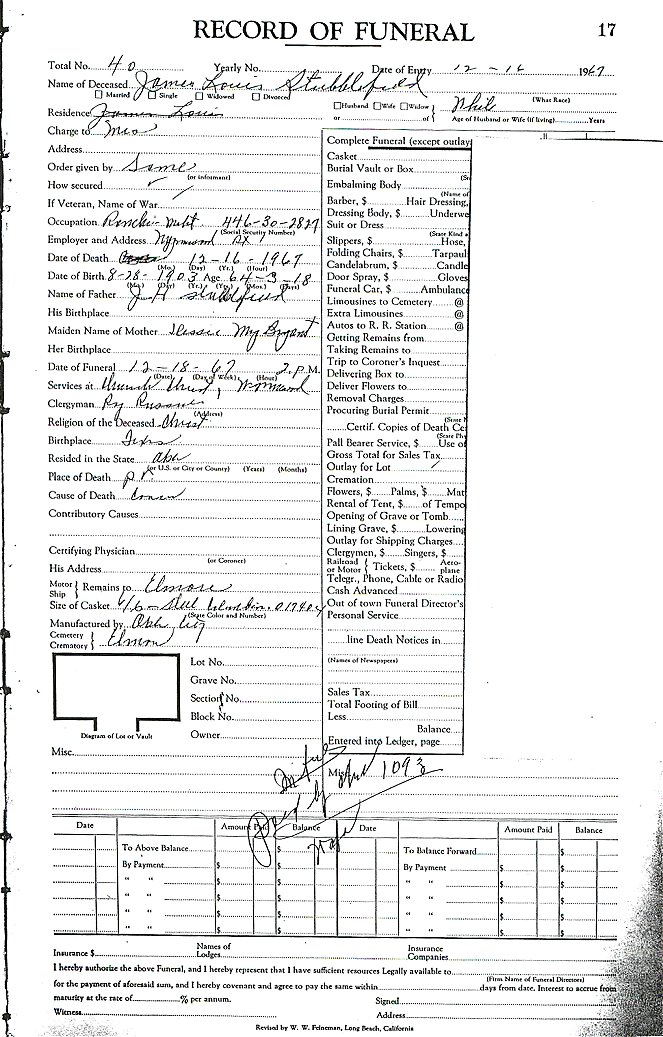 RECORD OF FUNERAL
17
Total No. 40 Yearly No. Date of Entry 12-16 1967
Name of Deceased James Louis Stubblefield
Married Single Widowed Divorced
Husband Wife Widow
(What Race)
Residence James Louis
or of Age of Husband or Wife (if living) Years
Charge to Mrs
Address
Order given by Same
(or informant)
How secured
If Veteran, Name of War
Occupation 446-30-2827
(Social Security Number)
Employer and Address
Date of Death 12-16-1967
(Mo.) (Day) (Yr.) (Hour)
Date of Birth 8-28-1903 Age 64-3-18
(Mo.) (Day) (Yr.) (Yrs.) (Mos.) (Days)
Name of Father J.H Stubblefield
His Birthplace
Maiden Name of Mother Bryant
Her Birthplace
Date of Funeral 12-18-67 2 P.M.
(Date) (Day of Week) (Hour)
Services at Church Christ,
Clergyman Ry
(Address)
Religion of the Deceased Christ
Birthplace Texas
Resided in the State Okla
(or U.S. or City or County) (Years) (Months)
Place of Death
Cause of Death
Contributory Causes
Certifying Physician
(or Coroner)
His Address
Motor Ship Remains to Elmore
Size of Casket 6/6 - Steel
(State Color and Number)
Manufactured by Okla City
Cemetery Crematory Elmore
Lot No.
Grave No.
Section No.
Block No.
Owner
Diagram of Lot or Vault
Misc.
Complete Funeral (except outlay
Casket
Burial Vault or Box
(St
Embalming Body
(Name of
Barber, $ Hair Dressing,
Dressing Body, $ Underwe
Suit or Dress
(State Kind a
Slippers, $ Hose,
Folding Chairs, $ Tarpaul
Candelabrum, $ Candle
Door Spray, $ Gloves
Funeral Car, $ Ambulanc
Limousines to Cemetery @
Extra Limousines @
Autos to R. R. Station @
Getting Remains from
Taking Remains to
Trip to Coroner's Inquest
Delivering Box to
Deliver Flowers to
Removal Charges
Procuring Burial Permit
(State N
Certif. Copies of Death Ce
(State Phy
Pall Bearer Service, $ Use of
Gross Total for Sales Tax
Outlay for Lot
Cremation
Flowers, $ Palms, $ Mat
Rental of Tent, $ of Tempo
Opening of Grave or Tomb
Lining Grave, $ Lowering
Outlay for Shipping Charges
Clergymen, $ Singers, $
Railroad or Motor Tickets, $ Aero-plane
Telegr., Phone, Cable or Radio
Cash Advanced
Out of town Funeral Director's
Personal Service
line Death Notices in
(Names of Newspapers)
Sales Tax
Total Footing of Bill
Less
Balance
Entered into Ledger, page
1093
Date Amount Paid Balance Date Amount Paid Balance
To Above Balance $ To Balance Forward $
By Payment $ $ By Payment $ $
" " $ $ " " $ $
" " $ $ " " $ $
" " $ $ " " $ $
" " $ $ " " $ $
Insurance $ Names of Lodges Insurance Companies
I hereby authorize the above Funeral, and I hereby represent that I have sufficient resources Legally available to
(Firm Name of Funeral Directors)
for the payment of aforesaid sum, and I hereby covenant and agree to pay the same within days from date. Interest to accrue from
maturity at the rate of % per annum. Signed
Witness Address
Revised by W. W. Feineman, Long Beach, California